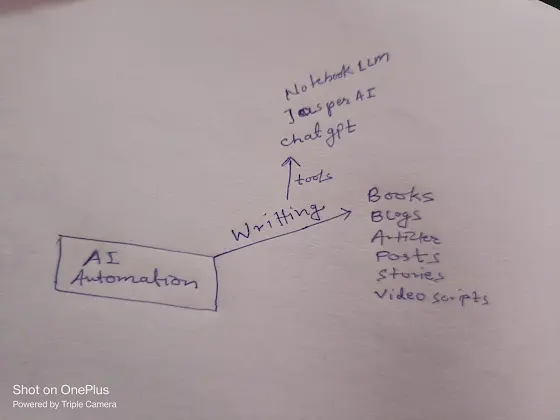 Notebook LLM
Jasper AI
chatgpt
tools
Writting
Books
Blogs
Articles
Posts
Stories
Video scripts
AI
Automation
Shot on OnePlus
Powered by Triple Camera